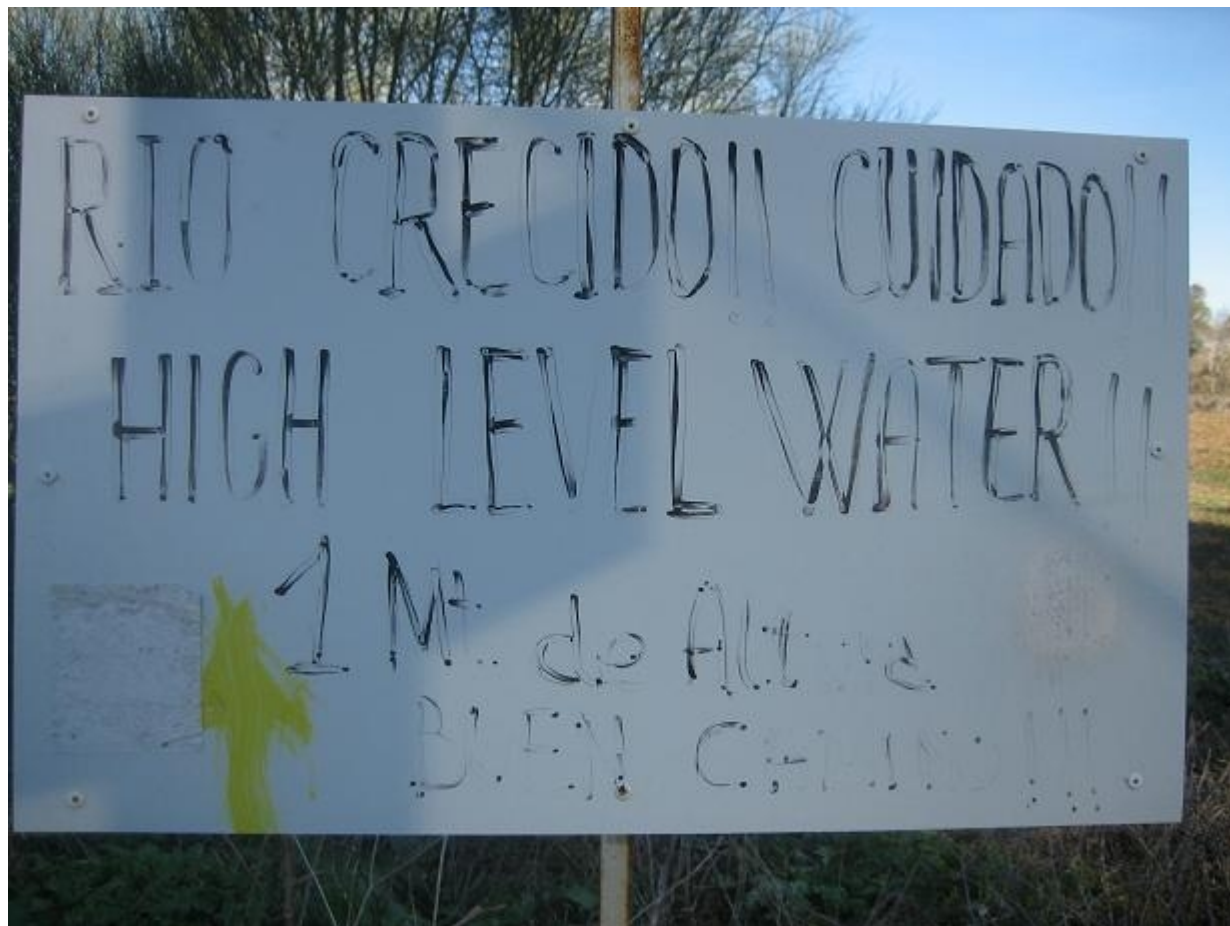 RIO CRECIDO!! CUIDADO!!
HIGH LEVEL WATER!!
1 Mt. de
BUEN CAMINO!!!